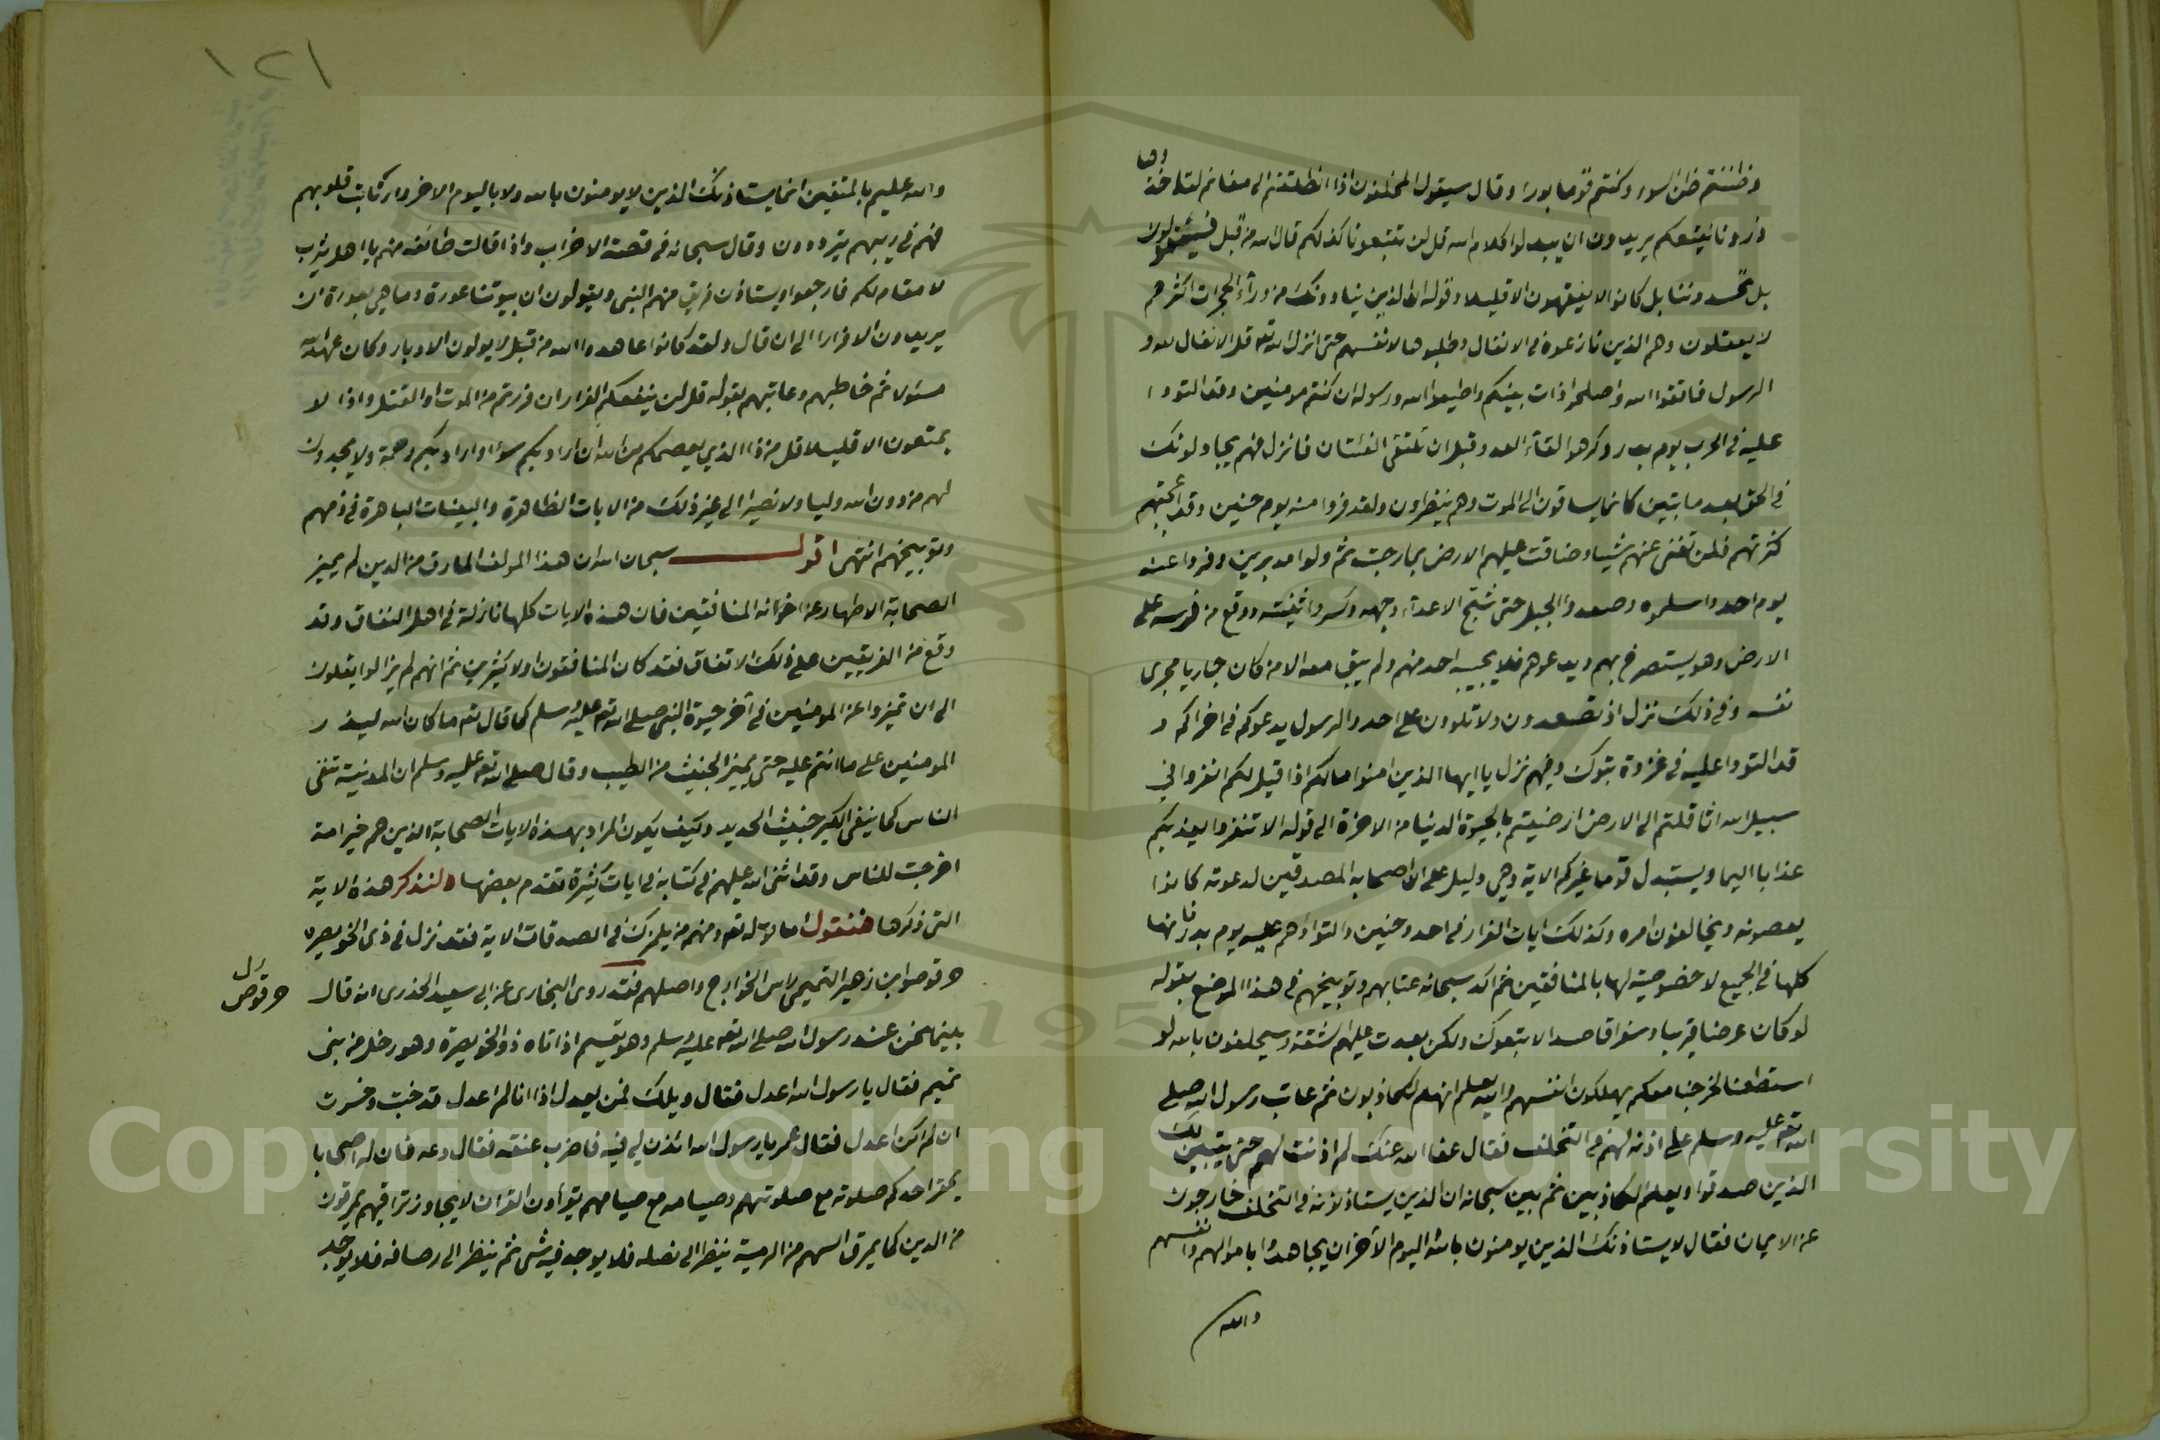 وظننتم ظن السوء وكنتم قوما بورا وقال سيقول المخلفون اذا انطلقتم الى مغانم لتاخذوها
ذرونا نتبعكم يريدون ان يبدلوا كلام الله قل لن تتبعونا كذلكم قال الله من قبل فسيقولون
بل تحسدوننا بل كانوا لا يفقهون الا قليلا وقوله ان الذين ينادونك من ورآء الحجرات اكثرهم
لا يعقلون وهم الذين نازعوه في الانفال وطلبوها لانفسهم حتى انزل الله تعه قل الانفال لله و
الرسول فاتقوا الله واصلحوا ذات بينكم واطيعوا الله ورسوله ان كنتم مومنين وقد التووا
عليه في الحرب يوم بدر وكرهوا لقآء العدو قبل ان تلتقى الفئتان فانزل فيهم يجادلونك
في الحق بعد ما تبين كانما يساقون الى الموت وهم ينظرون ولقد فروا منه يوم حنين وقد اعجبتهم
كثرتهم فلن تغنى عنهم شيا وضاقت عليهم الارض بما رحبت ثم ولوا مدبرين وفروا عنه
يوم احد واسلموه وصعدوا الجبل حتى شج الاعدآء وجهه وكسروا ثنيته ووقع من فرسه على
الارض وهو يستصرخ بهم ويدعوهم فلا يجيبه احد منهم ولم يبق معه الا من كان جاريا مجرى
نفسه وفي ذلك نزل اذ تصعدون ولا تلوون على احد والرسول يدعوكم في اخراكم و
قد التووا عليه في غزوة تبوك وفيهم نزل يا ايها الذين امنوا مالكم اذا قيل لكم انفروا في
سبيل الله اثاقلتم الى الارض ارضيتم بالحيوة الدنيا من الاخرة الى قوله الا تنفروا يعذبكم
عذابا اليما ويستبدل قوما غيركم الاية وهي دليل على ان اصحابه المصدقين لدعوته كانوا
يعصونه ويخالفون امره وكذلك ايات الفرار في احد وحنين والتواؤهم عليه يوم بدر فانها
كلها في الجميع لا خصوصية لها بالمنافقين ثم اكد سبحانه عتابهم وتوبيخهم في هذا الموضع بقوله
لو كان عرضا قريبا وسفرا قاصدا لاتبعوك ولكن بعدت عليهم الشقة وسيحلفون بالله لو
استطعنا لخرجنا معكم يهلكون انفسهم والله يعلم انهم لكاذبون ثم عاتب رسول الله صلى
الله تعه عليه وسلم على اذنه لهم في التخلف فقال عفا الله عنك لم اذنت لهم حتى يتبين لك
الذين صدقوا ويعلم الكاذبين ثم بين سبحانه ان الذين يستاذنونه في التخلف خارجون
عن الايمان فقال لا يستاذنك الذين يومنون بالله واليوم الآخر ان يجاهدوا باموالهم وانفسهم
والله
١٢١
والله عليم بالمتقين انما يستاذنك الذين لا يومنون بالله ولا باليوم الاخر وارتابت قلوبهم
فهم في ريبهم يترددون وقال سبحانه في قصة الاحزاب واذا قالت طائفة منهم يا اهل يثرب
لا مقام لكم فارجعوا ويستاذن فريق منهم النبى ويقولون ان بيوتنا عورة وما هي بعورة ان
يريدون الا فرارا الى ان قال ولقد كانوا عاهدوا الله من قبل لا يولون الادبار وكان عهد الله
مسئولا ثم خاطبهم وعاتبهم بقوله قل لن ينفعكم الفرار ان فررتم من الموت او القتل واذا لا
يمتعون الا قليلا قل من ذا الذي يعصمكم من الله ان اراد بكم سوءا او اراد بكم رحمة ولا يجدون
لهم من دون الله وليا ولا نصيرا الى غير ذلك من الايات الظاهرة والبينات الباهرة في ذمهم
وتوبيخهم انتهى اقول سبحان الله ان هذا المولف المارق من الدين لم يميز
الصحابة الاطهار عن اخوانه المنافقين فان هذه الايات كلها نازلة في اهل النفاق وقد
وقع من الفريقين على ذلك الاتفاق فقد كان المنافقون اولا كثيرين ثم انهم لم يزالوا يقلون
الى ان تميزوا عن المومنين في آخر حيوة النبى صلى الله تعه عليه وسلم كما قال تعه ما كان الله ليذر
المومنين على ما انتم عليه حتى يميز الخبيث من الطيب وقال صلى الله تعه عليه وسلم ان المدينة تنفى
الناس كما ينفى الكير خبث الحديد وكيف يكون المراد بهذه الايات الصحابة الذين هم خير امة
اخرجت للناس وقد اثنى الله عليهم في كتابه في ايات كثيرة تقدم بعضها ولنذكر هذه الاية
التى ذكرها فنقول اما قوله تعه ومنهم من يلمزك في الصدقات الاية فقد نزل في ذى الخويصرة
حرقوص ابن زهير التميمى راس الخوارج واصلهم فقد روى البخارى عن ابى سعيد الخذرى انه قال
حرقوص
بينما نحن عند رسول الله صلى الله تعه عليه وسلم وهو يقسم اذ اتاه ذو الخويصرة وهو رجل من بنى
تميم فقال يا رسول الله اعدل فقال ويلك فمن يعدل اذا انا لم اعدل قد خبت وخسرت
ان لم اكن اعدل فقال عمر يا رسول الله ائذن لي فيه فاضرب عنقه فقال دعه فان له اصحابا
يحقر احدكم صلوته مع صلوتهم وصيامه مع صيامهم يقرأون القران لا يجاوز تراقيهم يمرقون
من الدين كما يمرق السهم من الرمية ينظر الى نصله فلا يوجد فيه شى ثم ينظر الى رصافه فلا يوجد
Copyright © King Saud University
1957